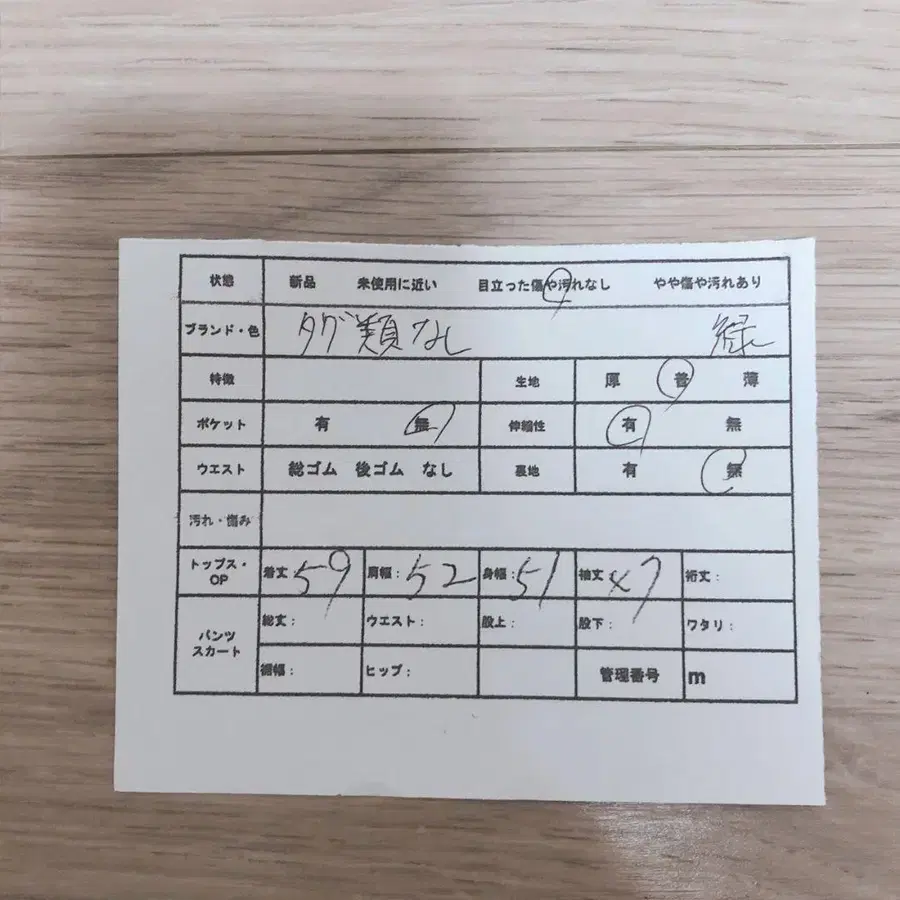 状態 新品 未使用に近い 目立った傷や汚れなし やや傷や汚れあり
ブランド・色 タグ類なし 緑
特徴 生地 厚 普 薄
ポケット 有 無 伸縮性 有 無
ウエスト 総ゴム 後ゴム なし 裏地 有 無
汚れ・傷み
トップス・OP 着丈: 59 肩幅: 52 身幅: 51 袖丈 47 裄丈:
パンツ スカート 総丈: ウエスト: 股上: 股下: ワタリ:
裾幅: ヒップ: 管理番号 m